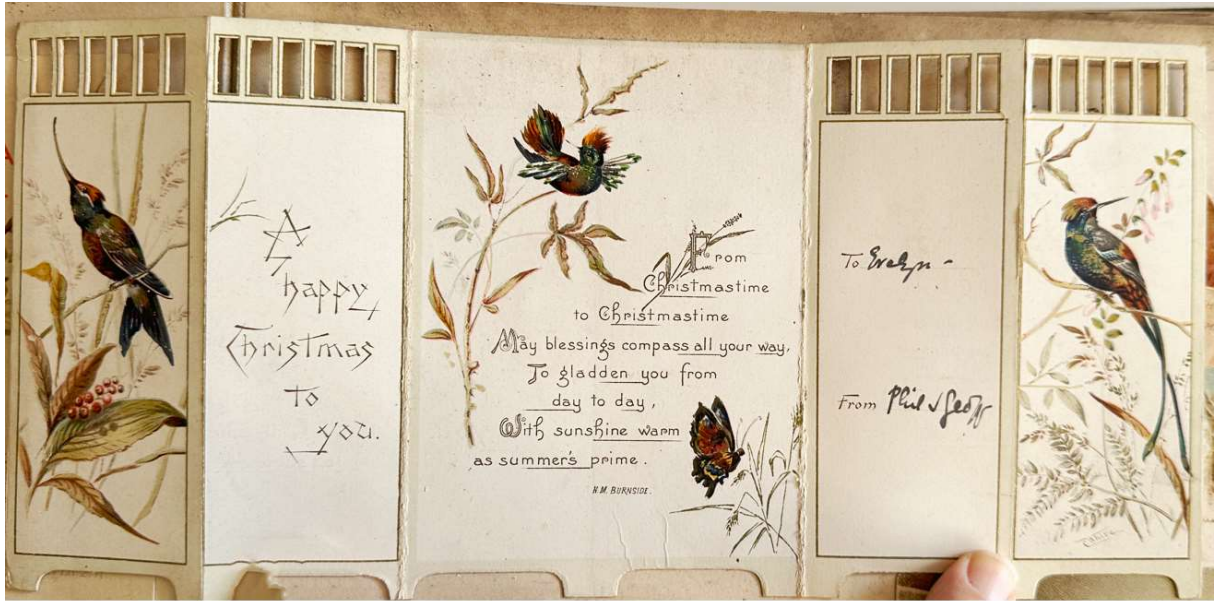 A
happy
Christmas
to
you.
From
Christmastime
to Christmastime
May blessings compass all your way,
To gladden you from
day to day,
With sunshine warm
as summer's prime.
H.M. BURNSIDE.
To Evelyn -
From Phil & Geoff